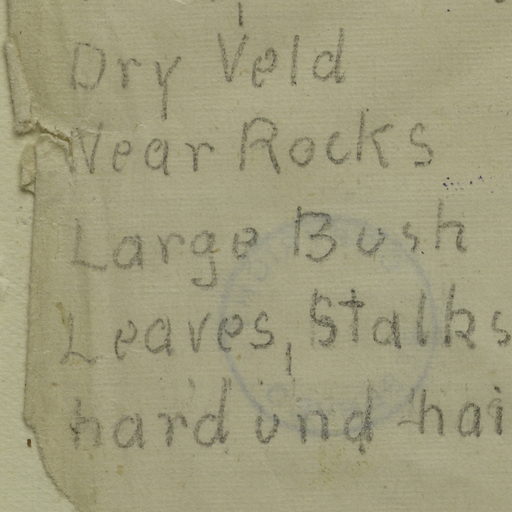 Dry Veld
Near Rocks
Large Bush
Leaves, Stalks
hard und hai